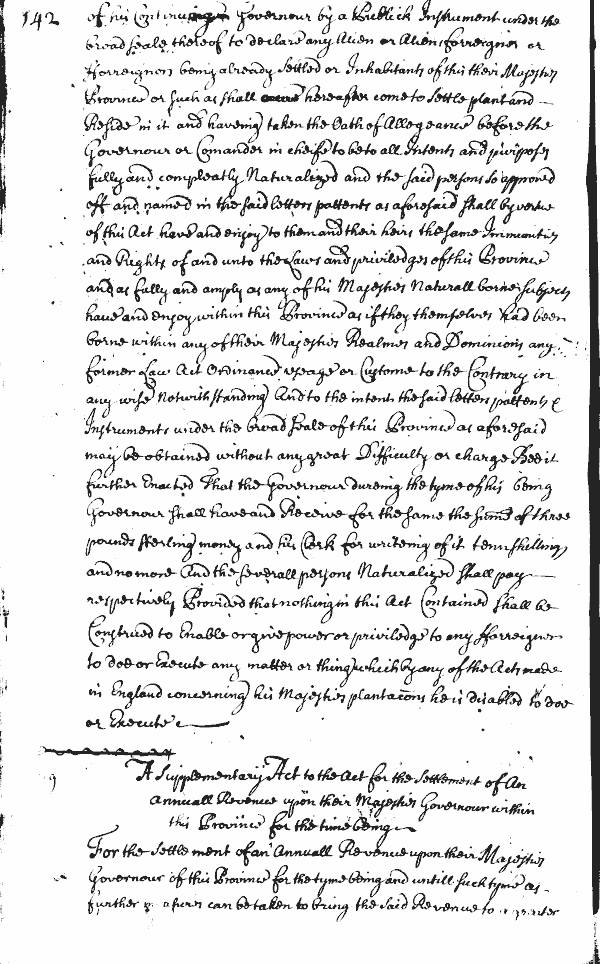 142
of his Continuing Governour by a Publick Instrument under the
broad Seale thereof to declare any Alien or Aliens forreigner or
fforreigners being already Settled or Inhabitants of this their Majesties
Province or Such as shall hereafter come to Settle plant and
Reside in it and haveing taken the Oath of Allegeance before the
Governour or Comander in cheife to be to all Intents and purposes
fully and compleatly Naturalized and the said persons so approved
off and named in the said letters pattents as aforesaid shall by vertue
of this Act have and enjoy to them and their heirs the same Immunities
and Rights of and unto the Laws and priviledges of this Province
and as fully and amply as any of his Majesties Naturall borne Subjects
have and enjoy within this Province as if they themselves had been
borne within any of their Majesties Realmes and Dominions any
former Law Act Ordinance useage or Custome to the Contrary in
any wise Notwithstanding And to the intent the said letters pattents &
Instruments under the broad Seale of this Province as aforesaid
may be obtained without any great Difficulty or charge Bee it
further Enacted That the Governour dureing the tyme of his being
Governour shall have and Receive for the same the sume of three
pounds sterling money and his Clerk for writeing of it tenn shillings
and no more And the severall persons Naturalized shall pay
respectively Provided that nothing in this Act Contained shall be
Construed to Enable or give power or priviledge to any fforreigner
to doe or Execute any matter or thing which by any of the Acts made
in England concerning his Majesties plantacons he is disabled to doe
or Execute
A Supplementary Act to the Act for the Settlement of An
Annuall Revenue upon their Majesties Governour within
this Province for the time being
For the Settlement of an Annuall Revenue upon their Majesties
Governour of this Province for the tyme being and untill such tyme as
further measures can be taken to bring the said Revenue to a greater